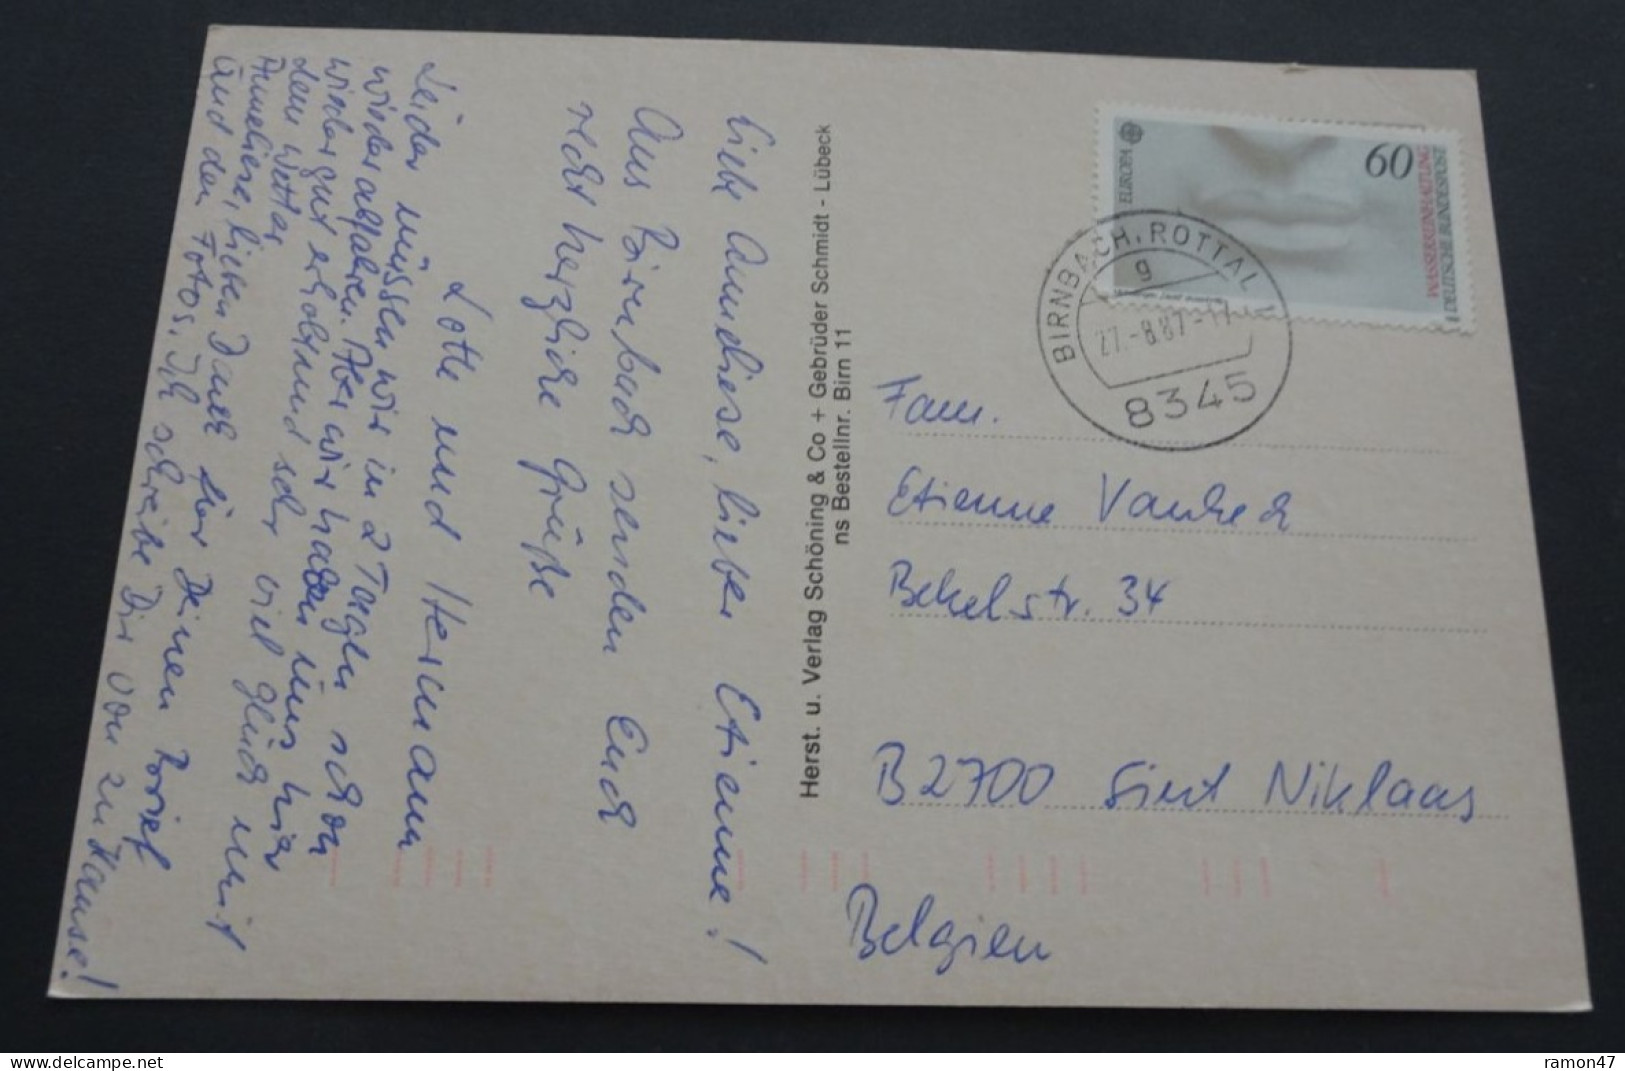 Liebe Anneliese, lieber Etienne!
Aus Birnbach senden Euch
recht herzliche Grüße
Lotte und Hermann
Leider müssen wir in 2 Tagen schon
wieder abfahren. Aber wir haben uns hier
wieder gut erholt und sehr viel Glück mit
dem Wetter.
Anneliese, lieben Dank für Deinen Brief
und den Fotos. Ich schreibe Dir von zu Hause!
Herst. u. Verlag Schöning & Co + Gebrüder Schmidt - Lübeck
ns Bestellnr. Birn 11
EUROPA
60
WASSERREINHALTUNG
DEUTSCHE BUNDESPOST
BIRNBACH, ROTTAL 1
g
27.-8.87-17
8345
Fam.
Etienne
Bekelstr. 34
B 2700 Sint Niklaas
Belgien
ramon47